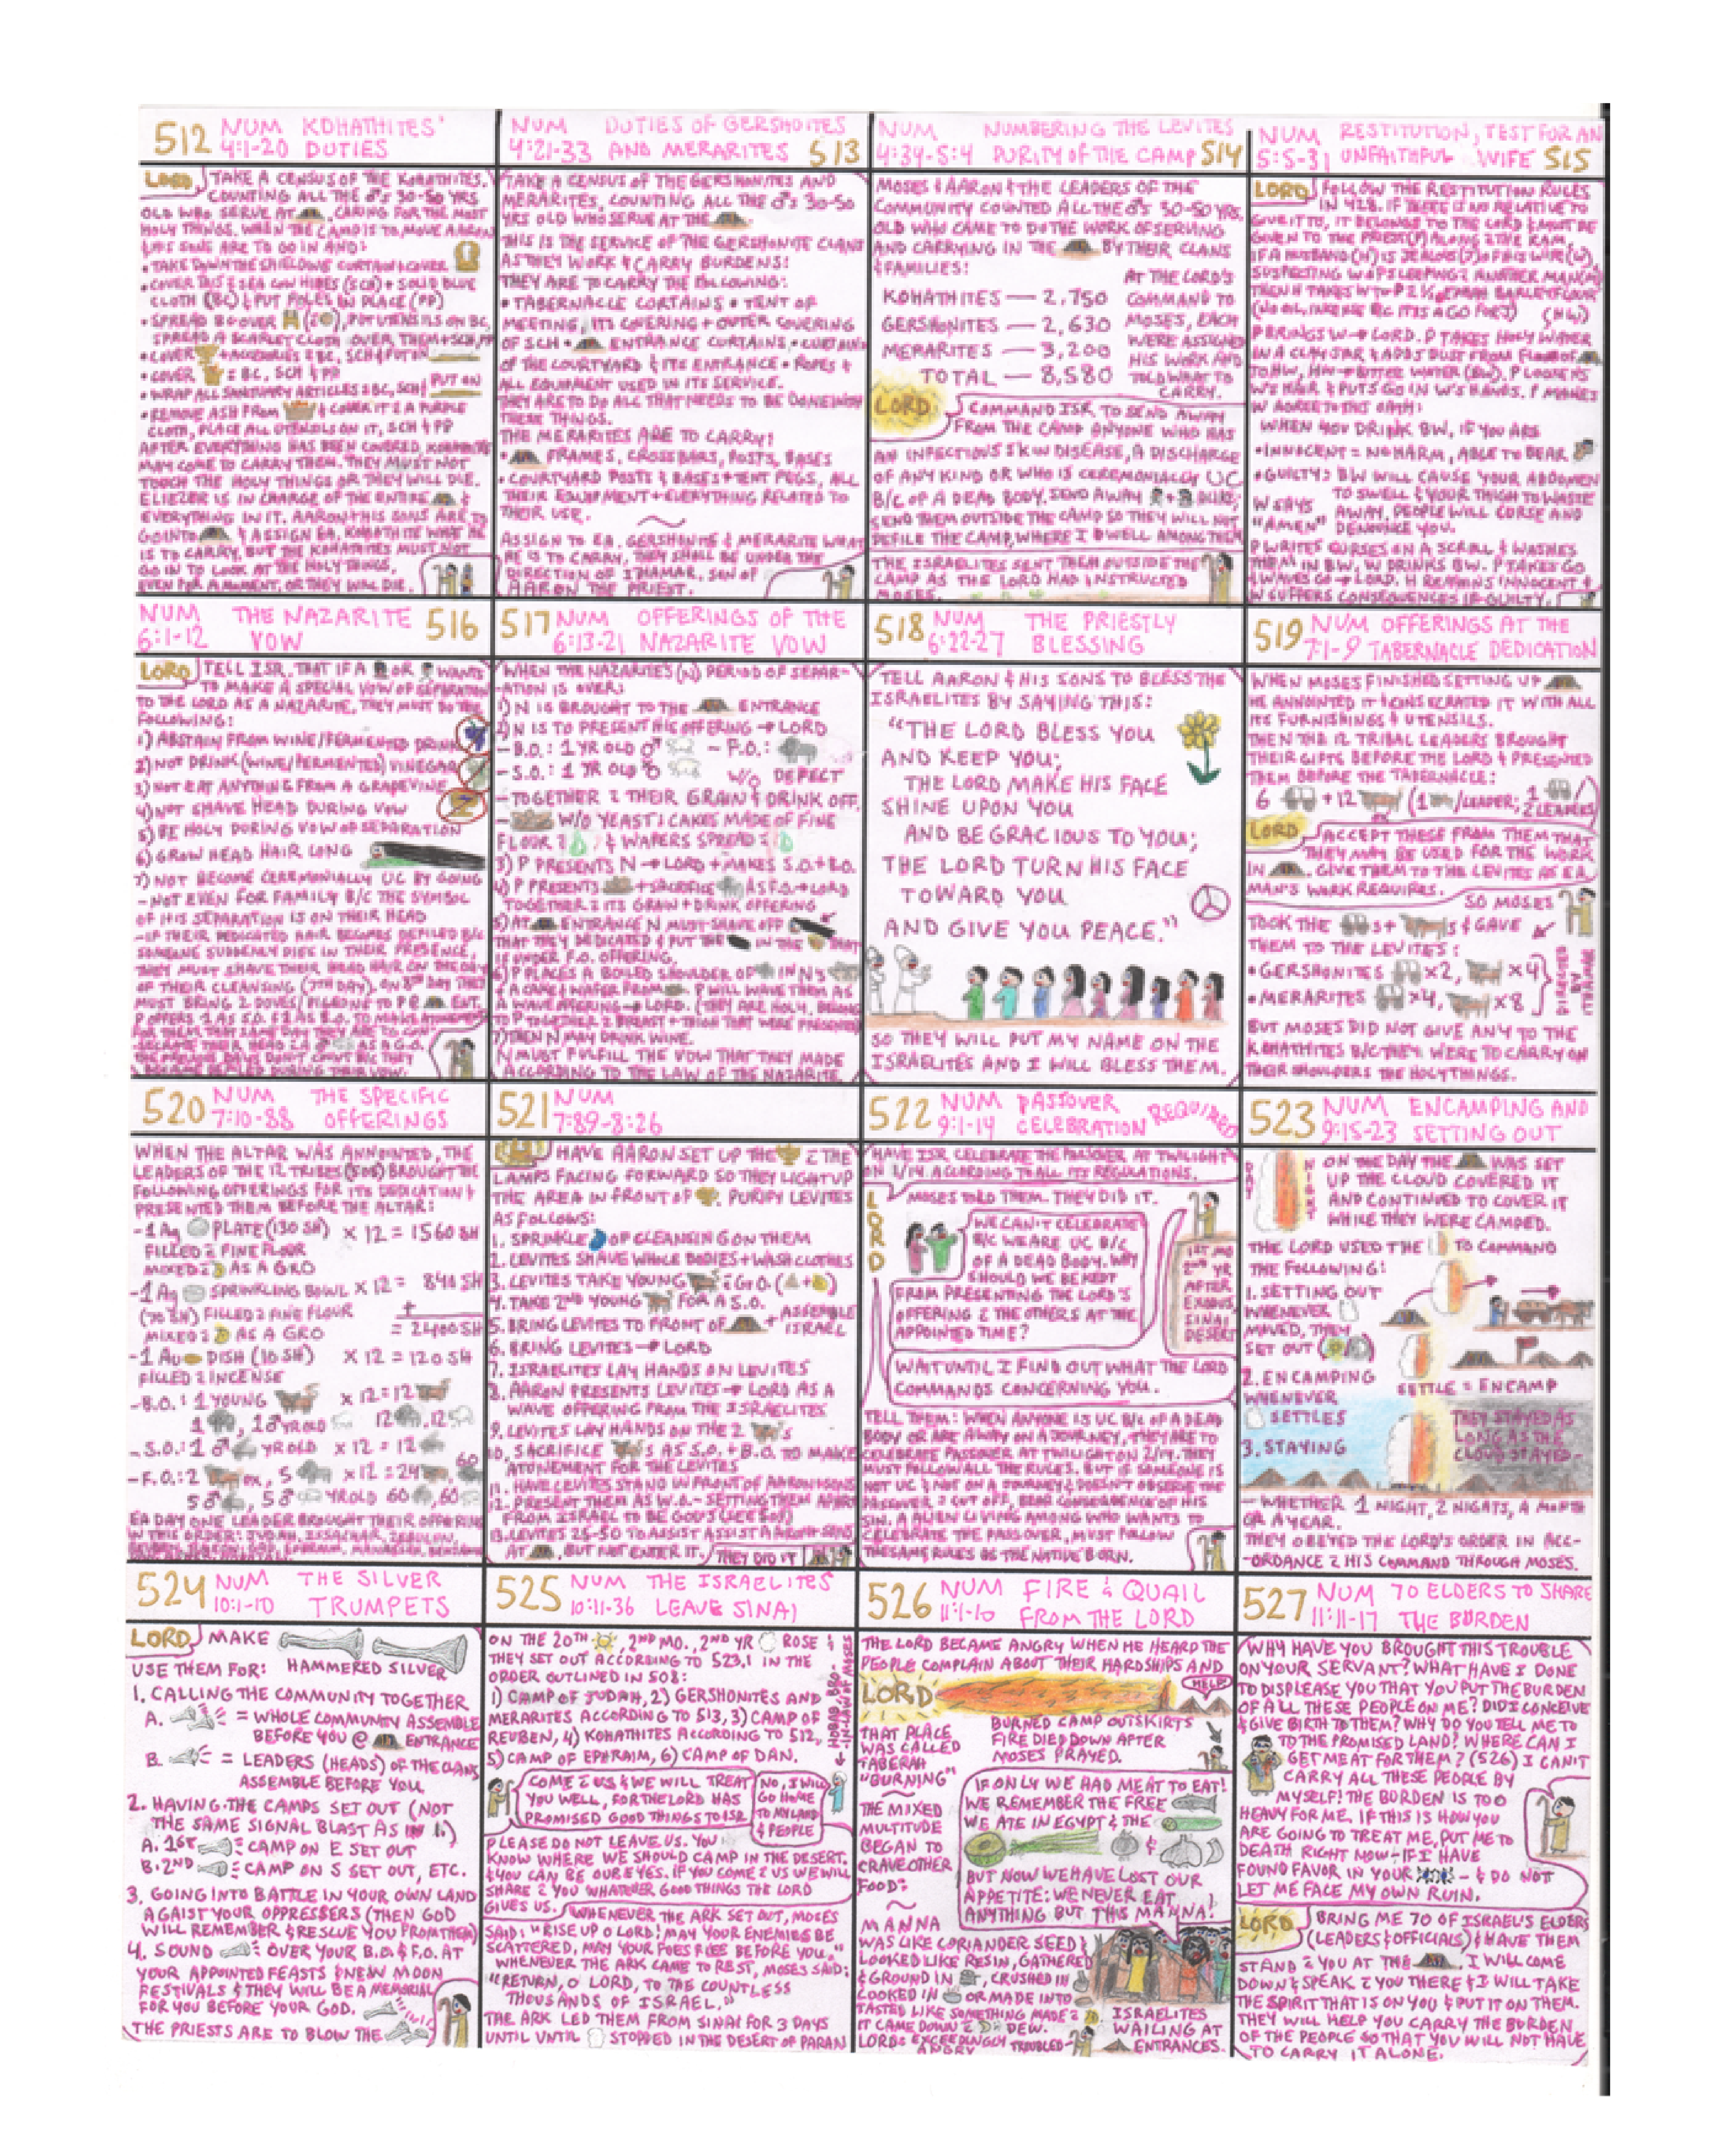 512 NUM 4:1-20 KOHATHITES' DUTIES
LORD TAKE A CENSUS OF THE KOHATHITES,
COUNTING ALL THE ♂'S 30-50 YRS
OLD WHO SERVE AT, CARING FOR THE MOST
HOLY THINGS. WHEN THE CAMP IS TO MOVE AARON
& HIS SONS ARE TO GO IN AND:
• TAKE DOWN THE SHIELDING CURTAIN & COVER
• COVER THIS SEA COW HIDES (SCH) + SOLID BLUE
CLOTH (BC) & PUT POLES IN PLACE (PP)
• SPREAD BC OVER, PUT UTENSILS ON BC,
SPREAD A SCARLET CLOTH OVER THEM + SCH, PP
• COVER + ACCESSORIES BC, SCH & PUT ON
• COVER BC, SCH & PP
• WRAP ALL SANCTUARY ARTICLES BC, SCH PUT ON
• REMOVE ASH FROM & COVER IT A PURPLE
CLOTH, PLACE ALL UTENSILS ON IT, SCH & PP
AFTER EVERYTHING HAS BEEN COVERED, KOHATHITES
MAY COME TO CARRY THEM. THEY MUST NOT
TOUCH THE HOLY THINGS OR THEY WILL DIE.
ELIEZER IS IN CHARGE OF THE ENTIRE &
EVERYTHING IN IT. AARON + HIS SONS ARE TO
GO INTO & ASSIGN EA. KOHATHITE WHAT HE
IS TO CARRY, BUT THE KOHATHITES MUST NOT
GO IN TO LOOK AT THE HOLY THINGS,
EVEN FOR A MOMENT, OR THEY WILL DIE.
NUM 4:21-33 DUTIES OF GERSHOITES AND MERARITES 513
TAKE A CENSUS OF THE GERSHONITES AND
MERARITES, COUNTING ALL THE ♂'S 30-50
YRS OLD WHO SERVE AT THE
THIS IS THE SERVICE OF THE GERSHONITE CLANS
AS THEY WORK & CARRY BURDENS:
THEY ARE TO CARRY THE FOLLOWING:
• TABERNACLE CURTAINS • TENT OF
MEETING, ITS COVERING + OUTER COVERING
OF SCH • ENTRANCE CURTAINS, • CURTAINS
OF THE COURTYARD & ITS ENTRANCE • ROPES &
ALL EQUIPMENT USED IN ITS SERVICE.
THEY ARE TO DO ALL THAT NEEDS TO BE DONE WITH
THESE THINGS.
THE MERARITES ARE TO CARRY:
• FRAMES, CROSSBARS, POSTS, BASES
• COURTYARD POSTS & BASES + TENT PEGS, ALL
THEIR EQUIPMENT + EVERYTHING RELATED TO
THEIR USE.
ASSIGN TO EA. GERSHONITE & MERARITE WHAT
HE IS TO CARRY. THEY SHALL BE UNDER THE
DIRECTION OF ITHAMAR, SON OF
AARON THE PRIEST.
NUM 4:34-5:4 NUMBERING THE LEVITES PURITY OF THE CAMP 514
MOSES & AARON & THE LEADERS OF THE
COMMUNITY COUNTED ALL THE ♂'S 30-50 YRS.
OLD WHO CAME TO DO THE WORK OF SERVING
AND CARRYING IN THE BY THEIR CLANS
& FAMILIES:
KOHATHITES — 2,750
GERSHONITES — 2,630
MERARITES — 3,200
TOTAL — 8,580
AT THE LORD'S
COMMAND TO
MOSES, EACH
WERE ASSIGNED
HIS WORK AND
TOLD WHAT TO
CARRY.
LORD COMMAND ISR. TO SEND AWAY
FROM THE CAMP ANYONE WHO HAS
AN INFECTIOUS SKIN DISEASE, A DISCHARGE
OF ANY KIND OR WHO IS CEREMONIALLY UC
B/C OF A DEAD BODY. SEND AWAY + ALIKE;
SEND THEM OUTSIDE THE CAMP SO THEY WILL NOT
DEFILE THE CAMP, WHERE I DWELL AMONG THEM
THE ISRAELITES SENT THEM OUTSIDE THE
CAMP AS THE LORD HAD INSTRUCTED
MOSES.
NUM 5:5-31 RESTITUTION, TEST FOR AN UNFAITHFUL WIFE 515
LORD FOLLOW THE RESTITUTION RULES
IN 428. IF THERE IS NO RELATIVE TO
GIVE IT TO, IT BELONGS TO THE LORD & MUST BE
GIVEN TO THE PRIEST (P) ALONG THE RAM.
IF A HUSBAND (H) IS JEALOUS (J) OF HIS WIFE (W),
SUSPECTING W OF SLEEPING ANOTHER MAN
THEN H TAKES W TO P
P BRINGS W → LORD. P TAKES HOLY WATER
IN A CLAY JAR & ADDS DUST FROM FLOOR OF
TO HW, HW → BITTER WATER (BW). P LOOSENS
W'S HAIR & PUTS GO IN W'S HANDS. P MAKES
W AGREE TO THIS OATH:
WHEN YOU DRINK BW, IF YOU ARE
• INNOCENT = NO HARM, ABLE TO BEAR
• GUILTY: BW WILL CAUSE YOUR ABDOMEN
TO SWELL & YOUR THIGH TO WASTE
AWAY. PEOPLE WILL CURSE AND
DENOUNCE YOU.
W SAYS
"AMEN"
P WRITES CURSES ON A SCROLL & WASHES
THEM IN BW. W DRINKS BW. P TAKES GO
& WAVES GO → LORD. H REMAINS INNOCENT &
W SUFFERS CONSEQUENCES IF GUILTY.
NUM 6:1-12 THE NAZARITE VOW 516
LORD TELL ISR. THAT IF A OR WANTS
TO MAKE A SPECIAL VOW OF SEPARATION
TO THE LORD AS A NAZARITE, THEY MUST DO THE
FOLLOWING:
1) ABSTAIN FROM WINE/FERMENTED DRINK
2) NOT DRINK (WINE/FERMENTED) VINEGAR
3) NOT EAT ANYTHING FROM A GRAPEVINE
4) NOT SHAVE HEAD DURING VOW
5) BE HOLY DURING VOW OF SEPARATION
6) GROW HEAD HAIR LONG
7) NOT BECOME CEREMONIALLY UC BY GOING
- NOT EVEN FOR FAMILY B/C THE SYMBOL
OF HIS SEPARATION IS ON THEIR HEAD
- IF THEIR DEDICATED HAIR BECOMES DEFILED B/C
SOMEONE SUDDENLY DIES IN THEIR PRESENCE,
THEY MUST SHAVE THEIR HEAD HAIR ON THE DAY
OF THEIR CLEANSING (7TH DAY). ON 8TH DAY THEY
MUST BRING 2 DOVES/PIGEONS TO P @ ENT.
P OFFERS 1 AS S.O. & 1 AS B.O. TO MAKE ATONEMENT
517 NUM 6:13-21 OFFERINGS OF THE NAZARITE VOW
WHEN THE NAZARITE'S (N) PERIOD OF SEPAR-
-ATION IS OVER:
1) N IS BROUGHT TO THE ENTRANCE
2) N IS TO PRESENT HIS OFFERING → LORD
- B.O.: 1 YR OLD ♂ - F.O.:
- S.O.: 1 YR OLD W/O DEFECT
- TOGETHER THEIR GRAIN & DRINK OFF.
- W/O YEAST: CAKES MADE OF FINE
FLOUR & WAFERS SPREAD
3) P PRESENTS N → LORD + MAKES S.O. + B.O.
4) P PRESENTS + SACRIFICE AS F.O. → LORD
TOGETHER ITS GRAIN + DRINK OFFERING
5) AT ENTRANCE N MUST SHAVE OFF
THAT THEY DEDICATED & PUT THE IN THE THAT
IF UNDER F.O. OFFERING.
6) P PLACES A BOILED SHOULDER OF IN N'S
+ A CAKE & WAFER FROM P WILL WAVE THEM AS
A WAVE OFFERING → LORD. (THEY ARE HOLY, BELONG
TO P TOGETHER BREAST + THIGH THAT WERE PRESENTED
7) THEN N MAY DRINK WINE.
N MUST FULFILL THE VOW THAT THEY MADE
ACCORDING TO THE LAW OF THE NAZARITE.
518 NUM 6:22-27 THE PRIESTLY BLESSING
TELL AARON & HIS SONS TO BLESS THE
ISRAELITES BY SAYING THIS:
"THE LORD BLESS YOU
AND KEEP YOU;
THE LORD MAKE HIS FACE
SHINE UPON YOU
AND BE GRACIOUS TO YOU;
THE LORD TURN HIS FACE
TOWARD YOU
AND GIVE YOU PEACE."
SO THEY WILL PUT MY NAME ON THE
ISRAELITES AND I WILL BLESS THEM.
519 NUM 7:1-9 OFFERINGS AT THE TABERNACLE DEDICATION
WHEN MOSES FINISHED SETTING UP
HE ANNOINTED IT & CONSECRATED IT WITH ALL
ITS FURNISHINGS & UTENSILS.
THEN THE 12 TRIBAL LEADERS BROUGHT
THEIR GIFTS BEFORE THE LORD & PRESENTED
THEM BEFORE THE TABERNACLE:
6 + 12 (1 /LEADER; 1 /2 LEADERS)
LORD ACCEPT THESE FROM THEM THAT
THEY MAY BE USED FOR THE WORK
IN. GIVE THEM TO THE LEVITES AS EA
MAN'S WORK REQUIRES.
SO MOSES
TOOK THE S + S & GAVE
THEM TO THE LEVITES:
• GERSHONITES x2, x4
• MERARITES x4, x8
DIRECTED BY ITHAMAR
BUT MOSES DID NOT GIVE ANY TO THE
KOHATHITES B/C THEY WERE TO CARRY ON
THEIR SHOULDERS THE HOLY THINGS.
520 NUM 7:10-88 THE SPECIFIC OFFERINGS
WHEN THE ALTAR WAS ANNOINTED, THE
LEADERS OF THE 12 TRIBES (503) BROUGHT THE
FOLLOWING OFFERINGS FOR ITS DEDICATION &
PRESENTED THEM BEFORE THE ALTAR:
- 1 Ag PLATE (130 SH) x 12 = 1560 SH
FILLED FINE FLOUR
MIXED AS A GRO
- 1 Ag SPRINKLING BOWL x 12 = 840 SH
(70 SH) FILLED FINE FLOUR +
MIXED AS A GRO = 2400 SH
- 1 Au DISH (10 SH) x 12 = 120 SH
FILLED INCENSE
- B.O.: 1 YOUNG x 12 = 12
1, 1 ♂ YR OLD 12, 12
- S.O.: 1 ♂ YR OLD x 12 = 12
- F.O.: 2 OX, 5 x 12 = 24, 60
5 ♂, 5 ♂ YR OLD 60, 60
EA DAY ONE LEADER BROUGHT THEIR OFFERING
IN THIS ORDER: JUDAH, ISSACHAR, ZEBULUN,
521 NUM 7:89-8:26
HAVE AARON SET UP THE THE
LAMPS FACING FORWARD SO THEY LIGHT UP
THE AREA IN FRONT OF. PURIFY LEVITES
AS FOLLOWS:
1. SPRINKLE OF CLEANSING ON THEM
2. LEVITES SHAVE WHOLE BODIES + WASH CLOTHES
3. LEVITES TAKE YOUNG GrO.
4. TAKE 2ND YOUNG FOR A S.O.
5. BRING LEVITES TO FRONT OF + ASSEMBLE ISRAEL
6. BRING LEVITES → LORD
7. ISRAELITES LAY HANDS ON LEVITES
8. AARON PRESENTS LEVITES → LORD AS A
WAVE OFFERING FROM THE ISRAELITES
9. LEVITES LAY HANDS ON THE 2 'S
10. SACRIFICE 'S AS S.O. + B.O. TO MAKE
ATONEMENT FOR THE LEVITES
11. HAVE LEVITES STAND IN FRONT OF AARON & SONS
12. PRESENT THEM AS W.O. - SETTING THEM APART
FROM ISRAEL TO BE GOD'S
13. LEVITES 25-50 TO ASSIST ASSIST AARON & SONS
AT, BUT NOT ENTER IT. THEY DID IT
522 NUM 9:1-14 PASSOVER CELEBRATION REQUIRED
HAVE ISR. CELEBRATE THE PASSOVER AT TWILIGHT
ON 1/14 ACCORDING TO ALL ITS REGULATIONS.
LORD
MOSES TOLD THEM. THEY DID IT.
WE CAN'T CELEBRATE
B/C WE ARE UC B/C
OF A DEAD BODY. WHY
SHOULD WE BE KEPT
FROM PRESENTING THE LORD'S
OFFERING THE OTHERS AT THE
APPOINTED TIME?
1ST MO
2ND YR
AFTER
EXODUS,
SINAI
DESERT
WAIT UNTIL I FIND OUT WHAT THE LORD
COMMANDS CONCERNING YOU.
TELL THEM: WHEN ANYONE IS UC B/C OF A DEAD
BODY OR ARE AWAY ON A JOURNEY, THEY ARE TO
CELEBRATE PASSOVER AT TWILIGHT ON 2/14. THEY
MUST FOLLOW ALL THE RULES. BUT IF SOMEONE IS
NOT UC & NOT ON A JOURNEY & DOESN'T OBSERVE THE
PASSOVER = CUT OFF, BEAR CONSEQUENCE OF HIS
SIN. A ALIEN LIVING AMONG WHO WANTS TO
CELEBRATE THE PASSOVER, MUST FOLLOW
THE SAME RULES AS THE NATIVE BORN.
523 NUM 9:15-23 ENCAMPING AND SETTING OUT
DAY
NIGHT
ON THE DAY THE WAS SET
UP THE CLOUD COVERED IT
AND CONTINUED TO COVER IT
WHILE THEY WERE CAMPED.
THE LORD USED THE TO COMMAND
THE FOLLOWING:
1. SETTING OUT
WHENEVER
MOVED, THEY
SET OUT
2. ENCAMPING
WHENEVER
SETTLES
SETTLE = ENCAMP
3. STAYING
THEY STAYED AS
LONG AS THE
CLOUD STAYED-
- WHETHER 1 NIGHT, 2 NIGHTS, A MONTH
OR A YEAR.
THEY OBEYED THE LORD'S ORDER IN ACC-
-ORDANCE HIS COMMAND THROUGH MOSES.
524 NUM 10:1-10 THE SILVER TRUMPETS
LORD MAKE
USE THEM FOR: HAMMERED SILVER
1. CALLING THE COMMUNITY TOGETHER
A. = WHOLE COMMUNITY ASSEMBLE
BEFORE YOU @ ENTRANCE
B. = LEADERS (HEADS) OF THE CLANS
ASSEMBLE BEFORE YOU
2. HAVING THE CAMPS SET OUT (NOT
THE SAME SIGNAL BLAST AS IN 1.)
A. 1ST = CAMP ON E SET OUT
B. 2ND = CAMP ON S SET OUT, ETC.
3. GOING INTO BATTLE IN YOUR OWN LAND
AGAIST YOUR OPPRESSERS (THEN GOD
WILL REMEMBER & RESCUE YOU FROM THEM)
4. SOUND OVER YOUR B.O. & F.O. AT
YOUR APPOINTED FEASTS & NEW MOON
FESTIVALS & THEY WILL BE A MEMORIAL
FOR YOU BEFORE YOUR GOD.
THE PRIESTS ARE TO BLOW THE
525 NUM 10:11-36 THE ISRAELITES LEAVE SINAI
ON THE 20TH, 2ND MO., 2ND YR ROSE &
THEY SET OUT ACCORDING TO 523.1 IN THE
ORDER OUTLINED IN 503:
1) CAMP OF JUDAH, 2) GERSHONITES AND
MERARITES ACCORDING TO 513, 3) CAMP OF
REUBEN, 4) KOHATHITES ACCORDING TO 512,
5) CAMP OF EPHRAIM, 6) CAMP OF DAN.
HOBAB, BRO-IN-LAW OF MOSES
COME US & WE WILL TREAT
YOU WELL, FOR THE LORD HAS
PROMISED GOOD THINGS TO ISR.
NO, I WILL
GO HOME
TO MY LAND
& PEOPLE
PLEASE DO NOT LEAVE US. YOU
KNOW WHERE WE SHOULD CAMP IN THE DESERT.
& YOU CAN BE OUR EYES. IF YOU COME US WE WILL
SHARE YOU WHATEVER GOOD THINGS THE LORD
GIVES US.
WHENEVER THE ARK SET OUT, MOSES
SAID: "RISE UP O LORD! MAY YOUR ENEMIES BE
SCATTERED, MAY YOUR FOES FLEE BEFORE YOU."
WHENEVER THE ARK CAME TO REST, MOSES SAID:
"RETURN, O LORD, TO THE COUNTLESS
THOUSANDS OF ISRAEL."
THE ARK LED THEM FROM SINAI FOR 3 DAYS
UNTIL UNTIL STOPPED IN THE DESERT OF PARAN
526 NUM 11:1-10 FIRE & QUAIL FROM THE LORD
THE LORD BECAME ANGRY WHEN HE HEARD THE
PEOPLE COMPLAIN ABOUT THEIR HARDSHIPS AND
LORD
HELP
BURNED CAMP OUTSKIRTS
FIRE DIED DOWN AFTER
MOSES PRAYED.
THAT PLACE
WAS CALLED
TABERAH
"BURNING"
THE MIXED
MULTITUDE
BEGAN TO
CRAVE OTHER
FOOD:
IF ONLY WE HAD MEAT TO EAT!
WE REMEMBER THE FREE
WE ATE IN EGYPT & THE
&
BUT NOW WE HAVE LOST OUR
APPETITE: WE NEVER EAT
ANYTHING BUT THIS MANNA!
MANNA
WAS LIKE CORIANDER SEED &
LOOKED LIKE RESIN, GATHERED
& GROUND IN, CRUSHED IN
COOKED IN OR MADE INTO
TASTED LIKE SOMETHING MADE
IT CAME DOWN DEW.
LORD: EXCEEDINGLY ANGRY
TROUBLED
ISRAELITES
WAILING AT
ENTRANCES.
527 NUM 11:11-17 70 ELDERS TO SHARE THE BURDEN
WHY HAVE YOU BROUGHT THIS TROUBLE
ON YOUR SERVANT? WHAT HAVE I DONE
TO DISPLEASE YOU THAT YOU PUT THE BURDEN
OF ALL THESE PEOPLE ON ME? DID I CONCEIVE
& GIVE BIRTH TO THEM? WHY DO YOU TELL ME TO
TO THE PROMISED LAND? WHERE CAN I
GET MEAT FOR THEM? (526) I CAN'T
CARRY ALL THESE PEOPLE BY
MYSELF! THE BURDEN IS TOO
HEAVY FOR ME. IF THIS IS HOW YOU
ARE GOING TO TREAT ME, PUT ME TO
DEATH RIGHT NOW - IF I HAVE
FOUND FAVOR IN YOUR - & DO NOT
LET ME FACE MY OWN RUIN.
LORD BRING ME 70 OF ISRAEL'S ELDERS
(LEADERS & OFFICIALS) & HAVE THEM
STAND YOU AT THE. I WILL COME
DOWN & SPEAK YOU THERE & I WILL TAKE
THE SPIRIT THAT IS ON YOU & PUT IT ON THEM.
THEY WILL HELP YOU CARRY THE BURDEN
OF THE PEOPLE SO THAT YOU WILL NOT HAVE
TO CARRY IT ALONE.